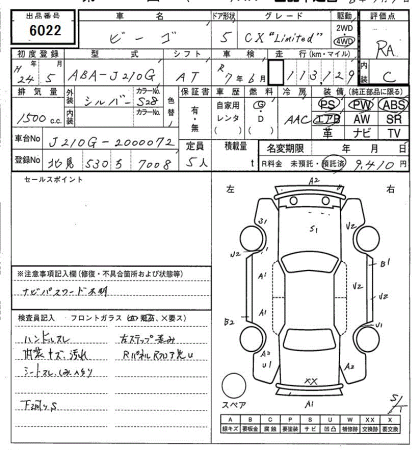 出品番号 車名 ドア形状 グレード 駆動 評価点
6022 ビーゴ 5 CX "Limited" 2WD 4WD RA
初度登録 型式 シフト 車検 走行(km・マイル) 内装
H 24.5 ABA-J210G AT R 7年6月 113,129 C
排気量 外装 カラーNo. 色替 保証書 車歴 燃料 冷房 装備(純正部品に限る)
1500cc シルバー S28 有・無 自家用 レンタ G D AAC PS PW ABS
内装 カラーNo. エアB AW SR
革 ナビ TV
車台No J210G-2000072 定員 積載量 名変期限 年 月 日
登録No 北見 530 ち 7008 5人 t R料金 未預託・預託済 9,410円
セールスポイント
左 右
A2
S1
※注意事項記入欄(修復・不具合箇所および状態等)
ナビパスワード不明
検査員記入 フロントガラス
ハンドルスレ 右ステップ歪み
内装キズ、汚れ
シートスレ、しみ
下回りS
S1 V2 V2 A1 A1 A1 B1 V2 B2 A2 U1 A2 XX A1
スペア
A B C P S U W X XX
線キズ 要板金 腐蝕 要塗装 サビ 凹凸 補修跡 要交換 交換済